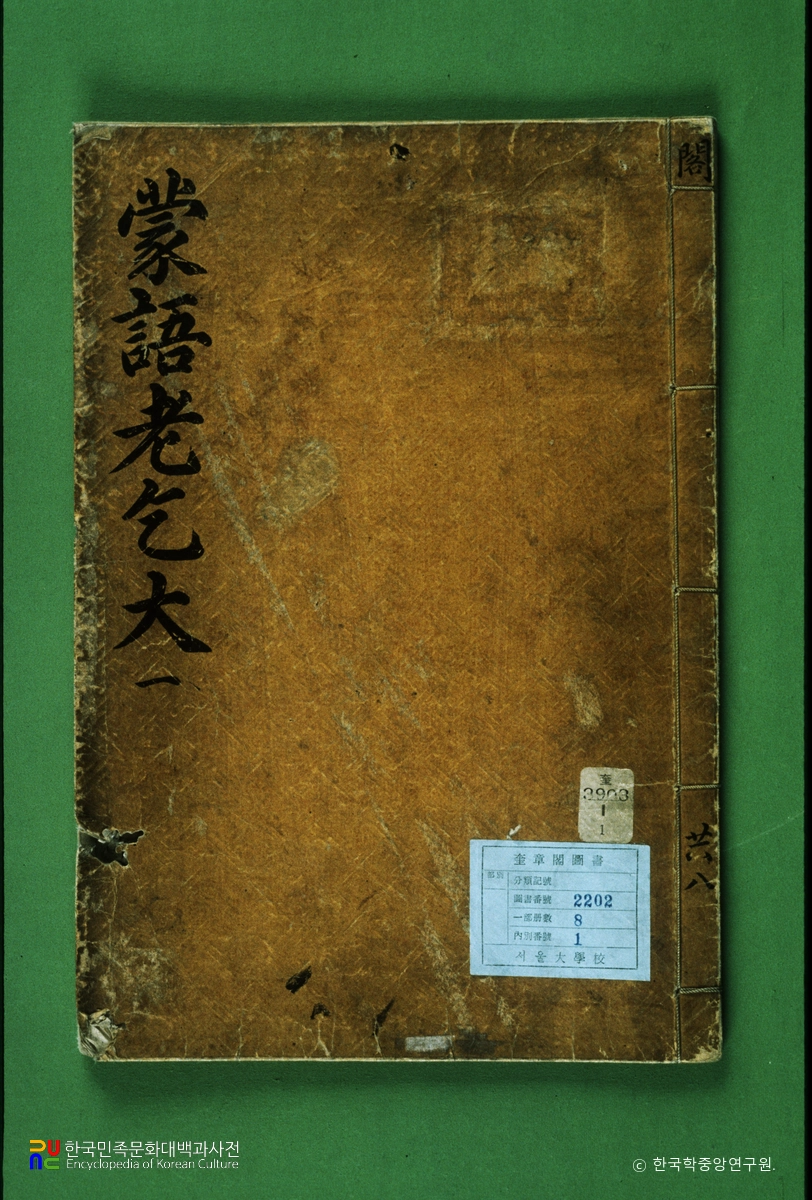 蒙語老乞大 一
閣
共八
奎
3903
1
1
奎章閣圖書
分類記號
圖書番號 2202
一部冊數 8
內別番號 1
서울大學校
한국민족문화대백과사전
Encyclopedia of Korean Culture
© 한국학중앙연구원.